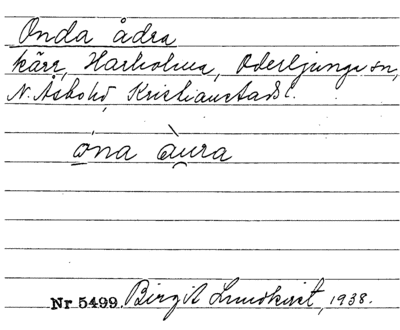 Onda ådra
kärr, Harholma, Oderljunga sn,
N. Åsbohd, Kristianstads l.
óna àu̯ra
Nr 5499. Birgit Lundkvist, 1938.